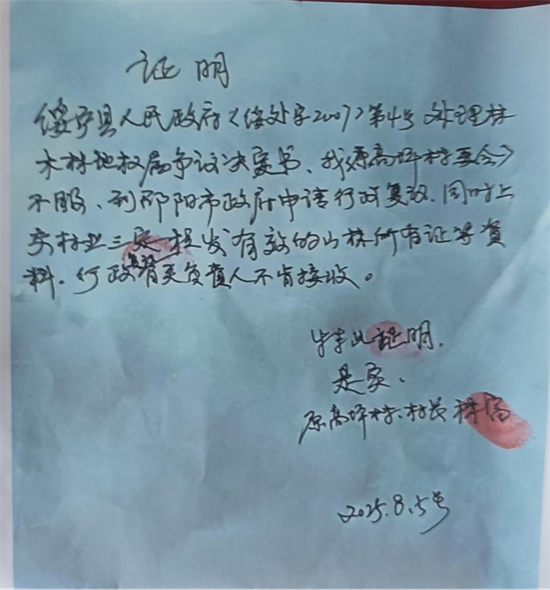 证明
绥宁县人民政府《绥处字2007》第4号处理林
木林地权属争议决定书、我原高坪村委会〉
不服、到邵阳市政府申请行政复议.同时上
交林业三定 颁发有效的山林所有证等资
料.行政复议有关负责人不肯接收。
特此证明.
是实、
原高坪村、村长
2025.8.5号